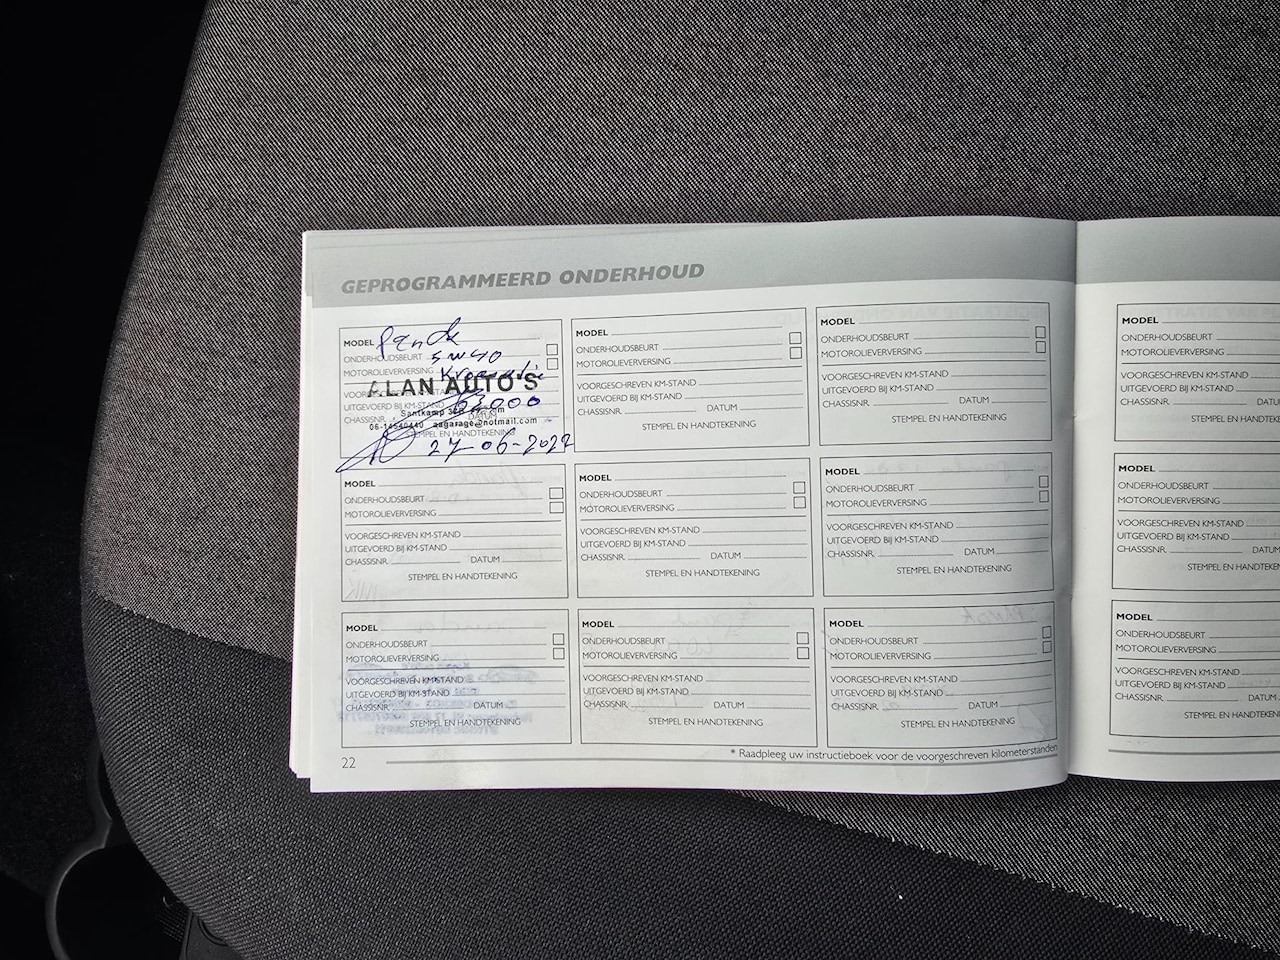 GEPROGRAMMEERD ONDERHOUD
MODEL Panda
ONDERHOUDSBEURT 5W40
MOTOROLIEVERVERSING
ALAN AUTO'S
UITGEVOERD BIJ KM-STAND 63000
CHASSISNR. DATUM
Santkamp
aagarage@hotmail.com
STEMPEL EN HANDTEKENING
27-06-2022
MODEL
ONDERHOUDSBEURT
MOTOROLIEVERVERSING
VOORGESCHREVEN KM-STAND
UITGEVOERD BIJ KM-STAND
CHASSISNR. DATUM
STEMPEL EN HANDTEKENING
MODEL
ONDERHOUDSBEURT
MOTOROLIEVERVERSING
VOORGESCHREVEN KM-STAND
UITGEVOERD BIJ KM-STAND
CHASSISNR. DATUM
STEMPEL EN HANDTEKENING
MODEL
ONDERHOUDSBEURT
MOTOROLIEVERVERSING
VOORGESCHREVEN KM-STAND
UITGEVOERD BIJ KM-STAND
CHASSISNR. DATUM
STEMPEL EN HANDTEKENING
MODEL
ONDERHOUDSBEURT
MOTOROLIEVERVERSING
VOORGESCHREVEN KM-STAND
UITGEVOERD BIJ KM-STAND
CHASSISNR. DATUM
STEMPEL EN HANDTEKENING
MODEL
ONDERHOUDSBEURT
MOTOROLIEVERVERSING
VOORGESCHREVEN KM-STAND
UITGEVOERD BIJ KM-STAND
CHASSISNR. DATUM
STEMPEL EN HANDTEKENING
MODEL
ONDERHOUDSBEURT
MOTOROLIEVERVERSING
VOORGESCHREVEN KM-STAND
UITGEVOERD BIJ KM-STAND
CHASSISNR. DATUM
STEMPEL EN HANDTEKENING
MODEL
ONDERHOUDSBEURT
MOTOROLIEVERVERSING
VOORGESCHREVEN KM-STAND
UITGEVOERD BIJ KM-STAND
CHASSISNR. DATUM
STEMPEL EN HANDTEKENING
MODEL
ONDERHOUDSBEURT
MOTOROLIEVERVERSING
VOORGESCHREVEN KM-STAND
UITGEVOERD BIJ KM-STAND
CHASSISNR. DATUM
STEMPEL EN HANDTEKENING
* Raadpleeg uw instructieboek voor de voorgeschreven kilometerstanden
22
MODEL
ONDERHOUDSBEURT
MOTOROLIEVERVERSING
VOORGESCHREVEN KM-STAND
UITGEVOERD BIJ KM-STAND
CHASSISNR. DATUM
STEMPEL EN HAND
MODEL
ONDERHOUDSBEURT
MOTOROLIEVERVERSING
VOORGESCHREVEN KM-STAND
UITGEVOERD BIJ KM-STAND
CHASSISNR. DATUM
STEMPEL EN HAN
MODEL
ONDERHOUDSBEURT
MOTOROLIEVERVERSING
VOORGESCHREVEN KM-STAND
UITGEVOERD BIJ KM-STAND
CHASSISNR. DATUM
STEMPEL EN HAN